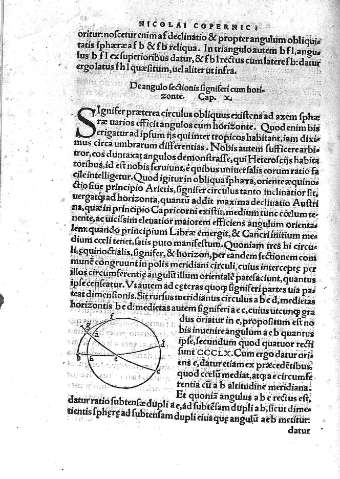 NICOLAI COPERNICI
oritur: noscetur enim af declinatio & propter angulum obliqui-
tatis sphæræ a f b & f b reliqua. In triangulo autem b f l, angu-
lus b f l ex superioribus datur, & f b l rectus cum latere f b: datur
ergo latus f h l quæsitum, uel aliter ut infra.
De angulo sectionis signiferi cum hori-
zonte. Cap. x.
SIgnifer præterea circulus obliquus existens ad axem sphæ
ræ uarios efficit angulos cum horizonte. Quod enim bis
erigatur ad ipsum ijs qui inter tropicos habitant, iam dixi-
mus circa umbrarum differentias. Nobis autem sufficere arbi-
tror, eos duntaxat angulos demonstrasse, qui Heteroscijs habita
toribus, id est nobis seruiunt, e quibus uniuersalis eorum ratio fa
cile intelligetur. Quod igitur in obliqua sphæra, oriente æquino
ctio siue principio Arietis, signifer circulus tanto inclinatior sit,
uergatque ad horizonta, quantū addit maxima declinatio Austri
na, quæ in principio Capricorni existit, medium tunc cœlum te-
nente, ac uicissim eleuatior maiorem efficiens angulum orienta-
lem: quando principium Libræ emergit, & Cancri initium me-
dium cœli tenet, satis puto manifestum. Quoniam tres hi circu-
li, æquinoctialis, signifer, & horizon, per eandem sectionem com
munē congruunt in polis meridiani circuli, cuius intercepti per
illos circumferentiæ angulū illum orientalē patefaciunt, quantus
ipse censeatur. Vt autem ad ceteras quoque signiferi partes uia pa-
teat dimensionis. Sit rursus meridianus circulus a b c d, medietas
horizontis b e d: medietas autem signiferi a e c, cuius utcunque gra
dus oriatur in e, propositum est no
bis inuenire angulum a e b quantus
ipse, secundum quod quatuor recti
sunt CCCLX. Cum ergo datur ori-
ens e, datur etiam ex præcedētibus,
quod cœlū mediat, atque a e circumfe
rentia cū a b altitudine meridiana.
Et quoniā angulus a b e rectus est,
datur ratio subtensæ dupli a e, ad subtēsam dupli a b, sicut dime-
tientis spheræ ad subtensam dupli eius quæ angulū a e b metitur:
datur